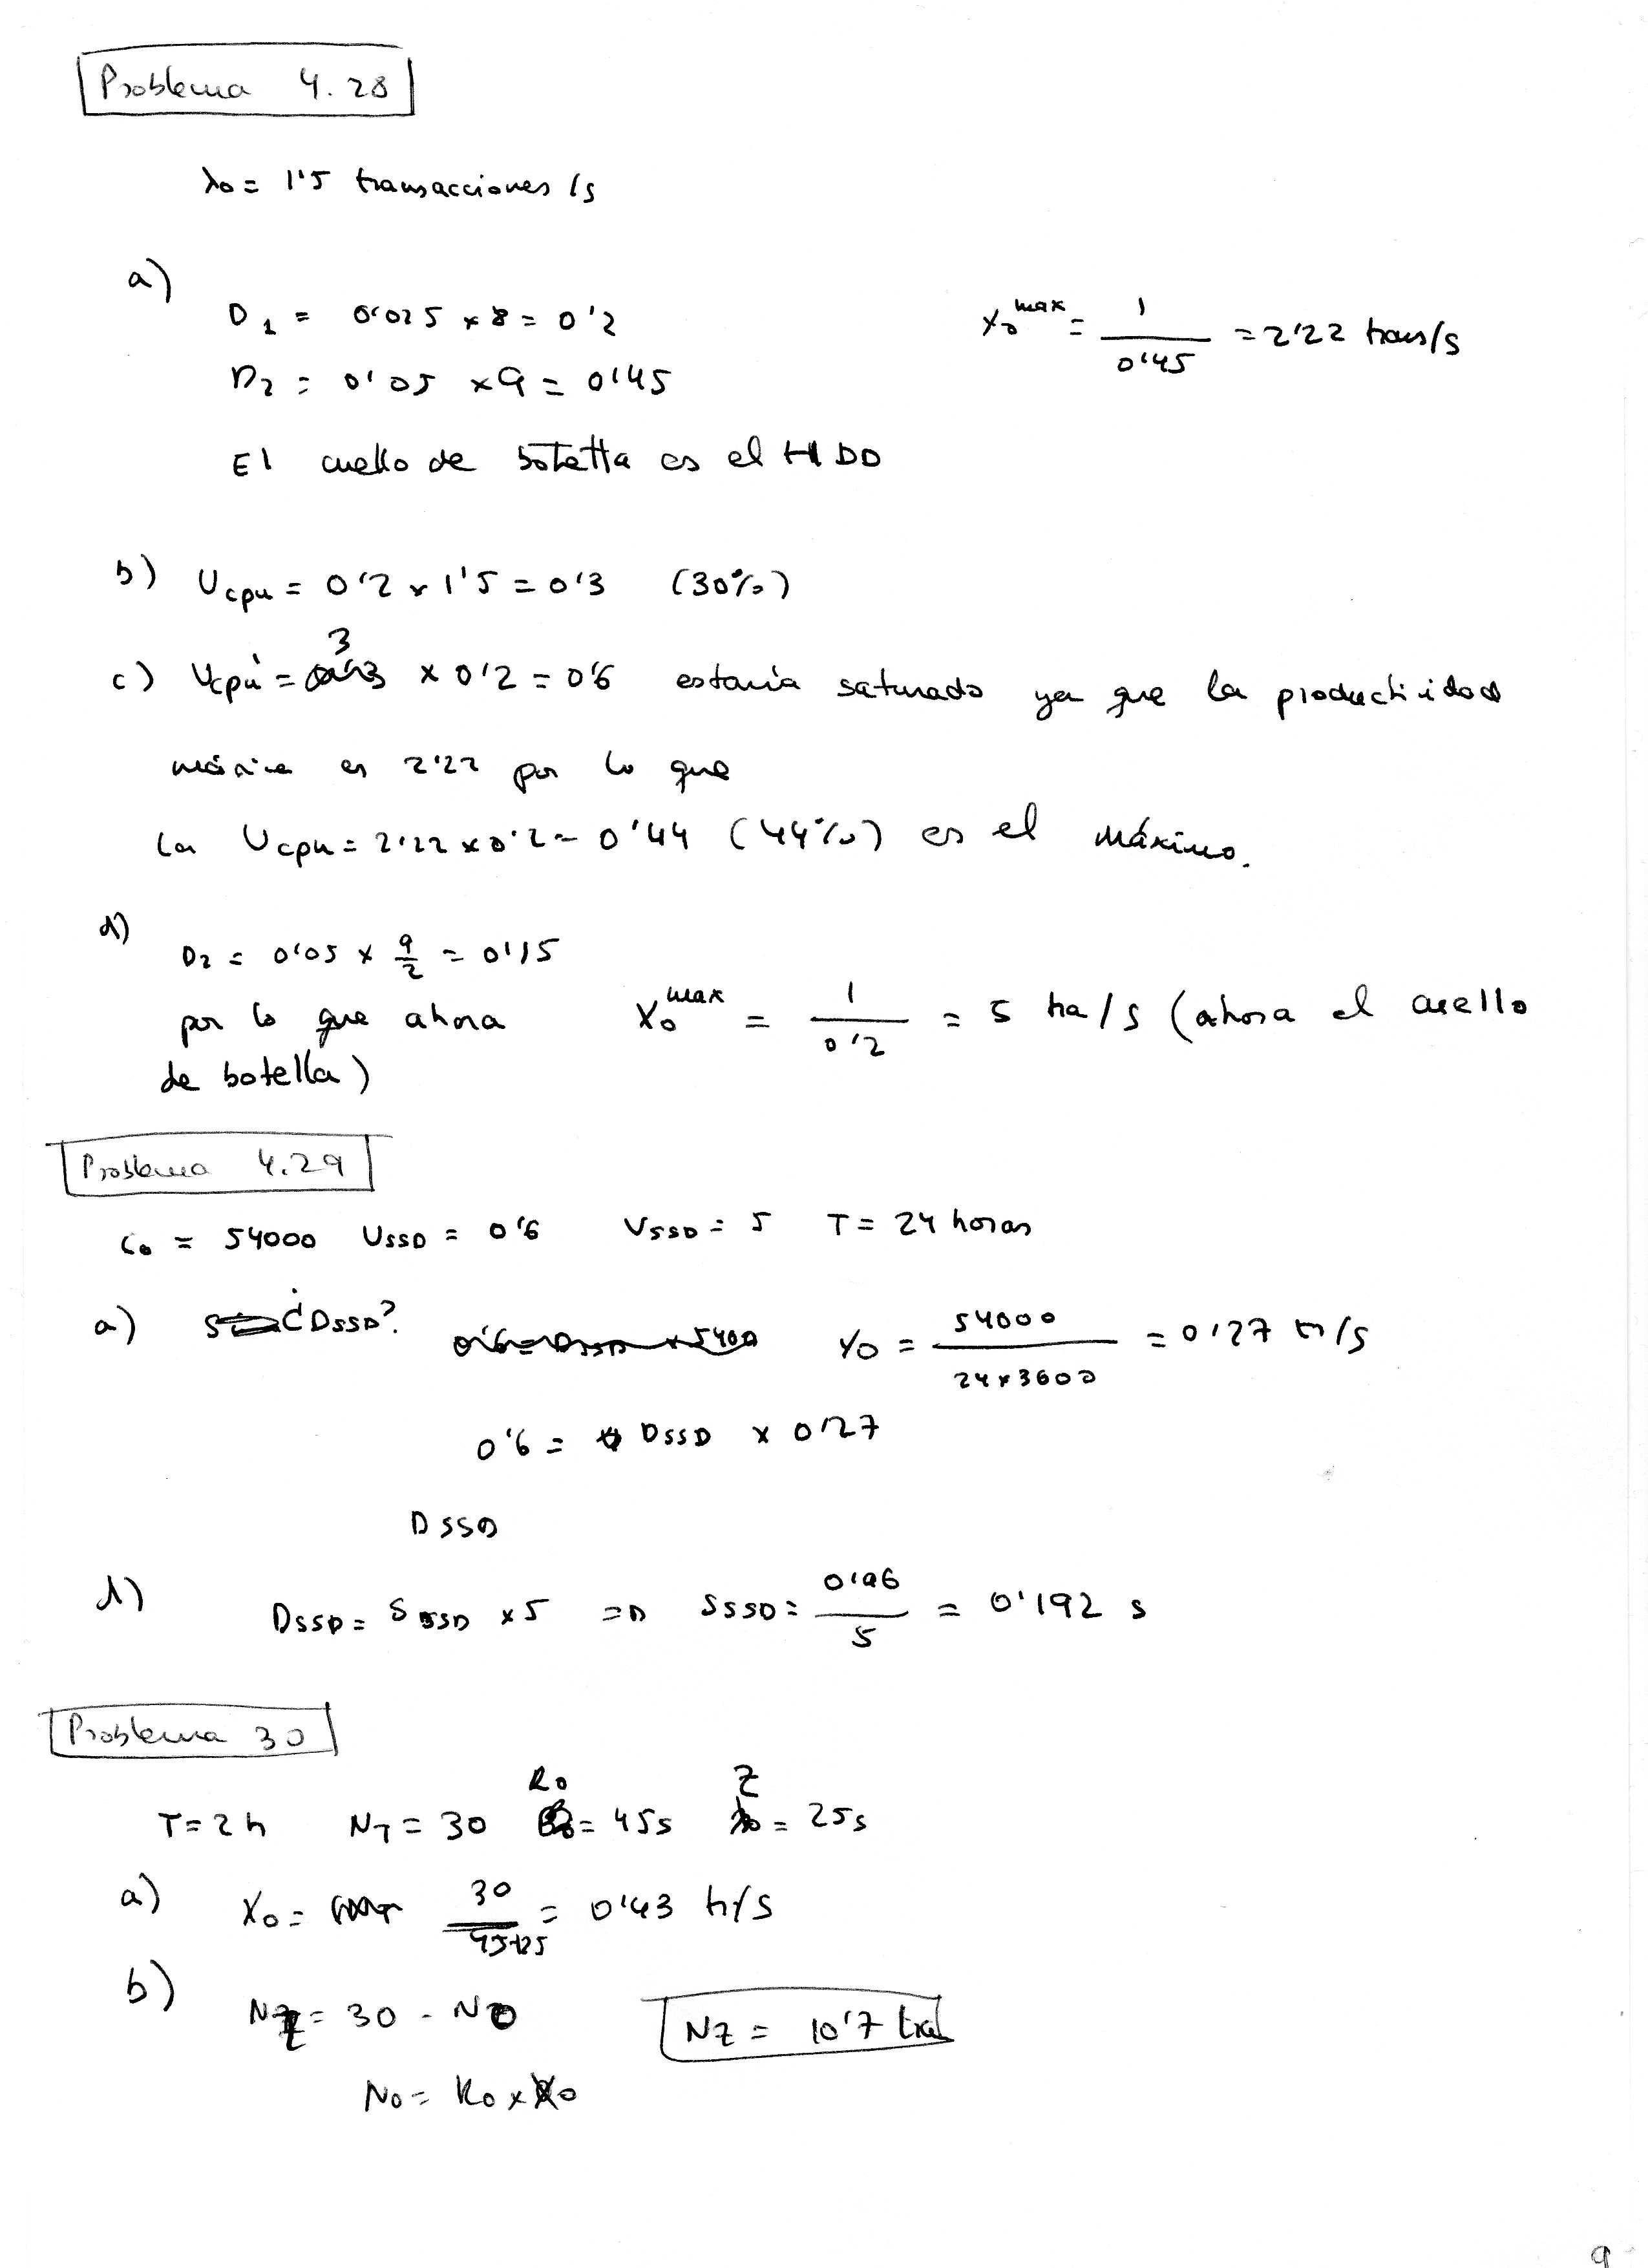 Problema 4.28
λ0 = 1'5 transacciones /s
a)
D1 = 0'025 x 8 = 0'2
X0^max = 1/0'45 = 2'22 trans/s
D2 = 0'05 x 9 = 0'45
El cuello de botella es el HDD
b) Ucpu = 0'2 x 1'5 = 0'3 (30%)
c) Ucpu' = 3 x 0'2 = 0'6 estaría saturado ya que la productividad
máxima es 2'22 por lo que
la Ucpu = 2'22 x 0'2 = 0'44 (44%) es el máximo.
d)
D2 = 0'05 x 9/2 = 0'15
por lo que ahora X0^max = 1/0'2 = 5 tra/s (ahora el cuello
de botella)
Problema 4.29
C0 = 54000 USSD = 0'6 VSSD = 5 T = 24 horas
a) ¿DSSD? X0 = 54000/24x3600 = 0'27 tr/s
0'6 = DSSD x 0'27
DSSD
d) DSSD = SSSD x 5 => SSSD = 0'96/5 = 0'192 s
Problema 30
T = 2h NT = 30 R0 = 45s Z = 25s
a) X0 = 30/45+25 = 0'43 tr/s
b)
NZ = 30 - N0
NZ = 10'7 tra
N0 = R0 x X0
9